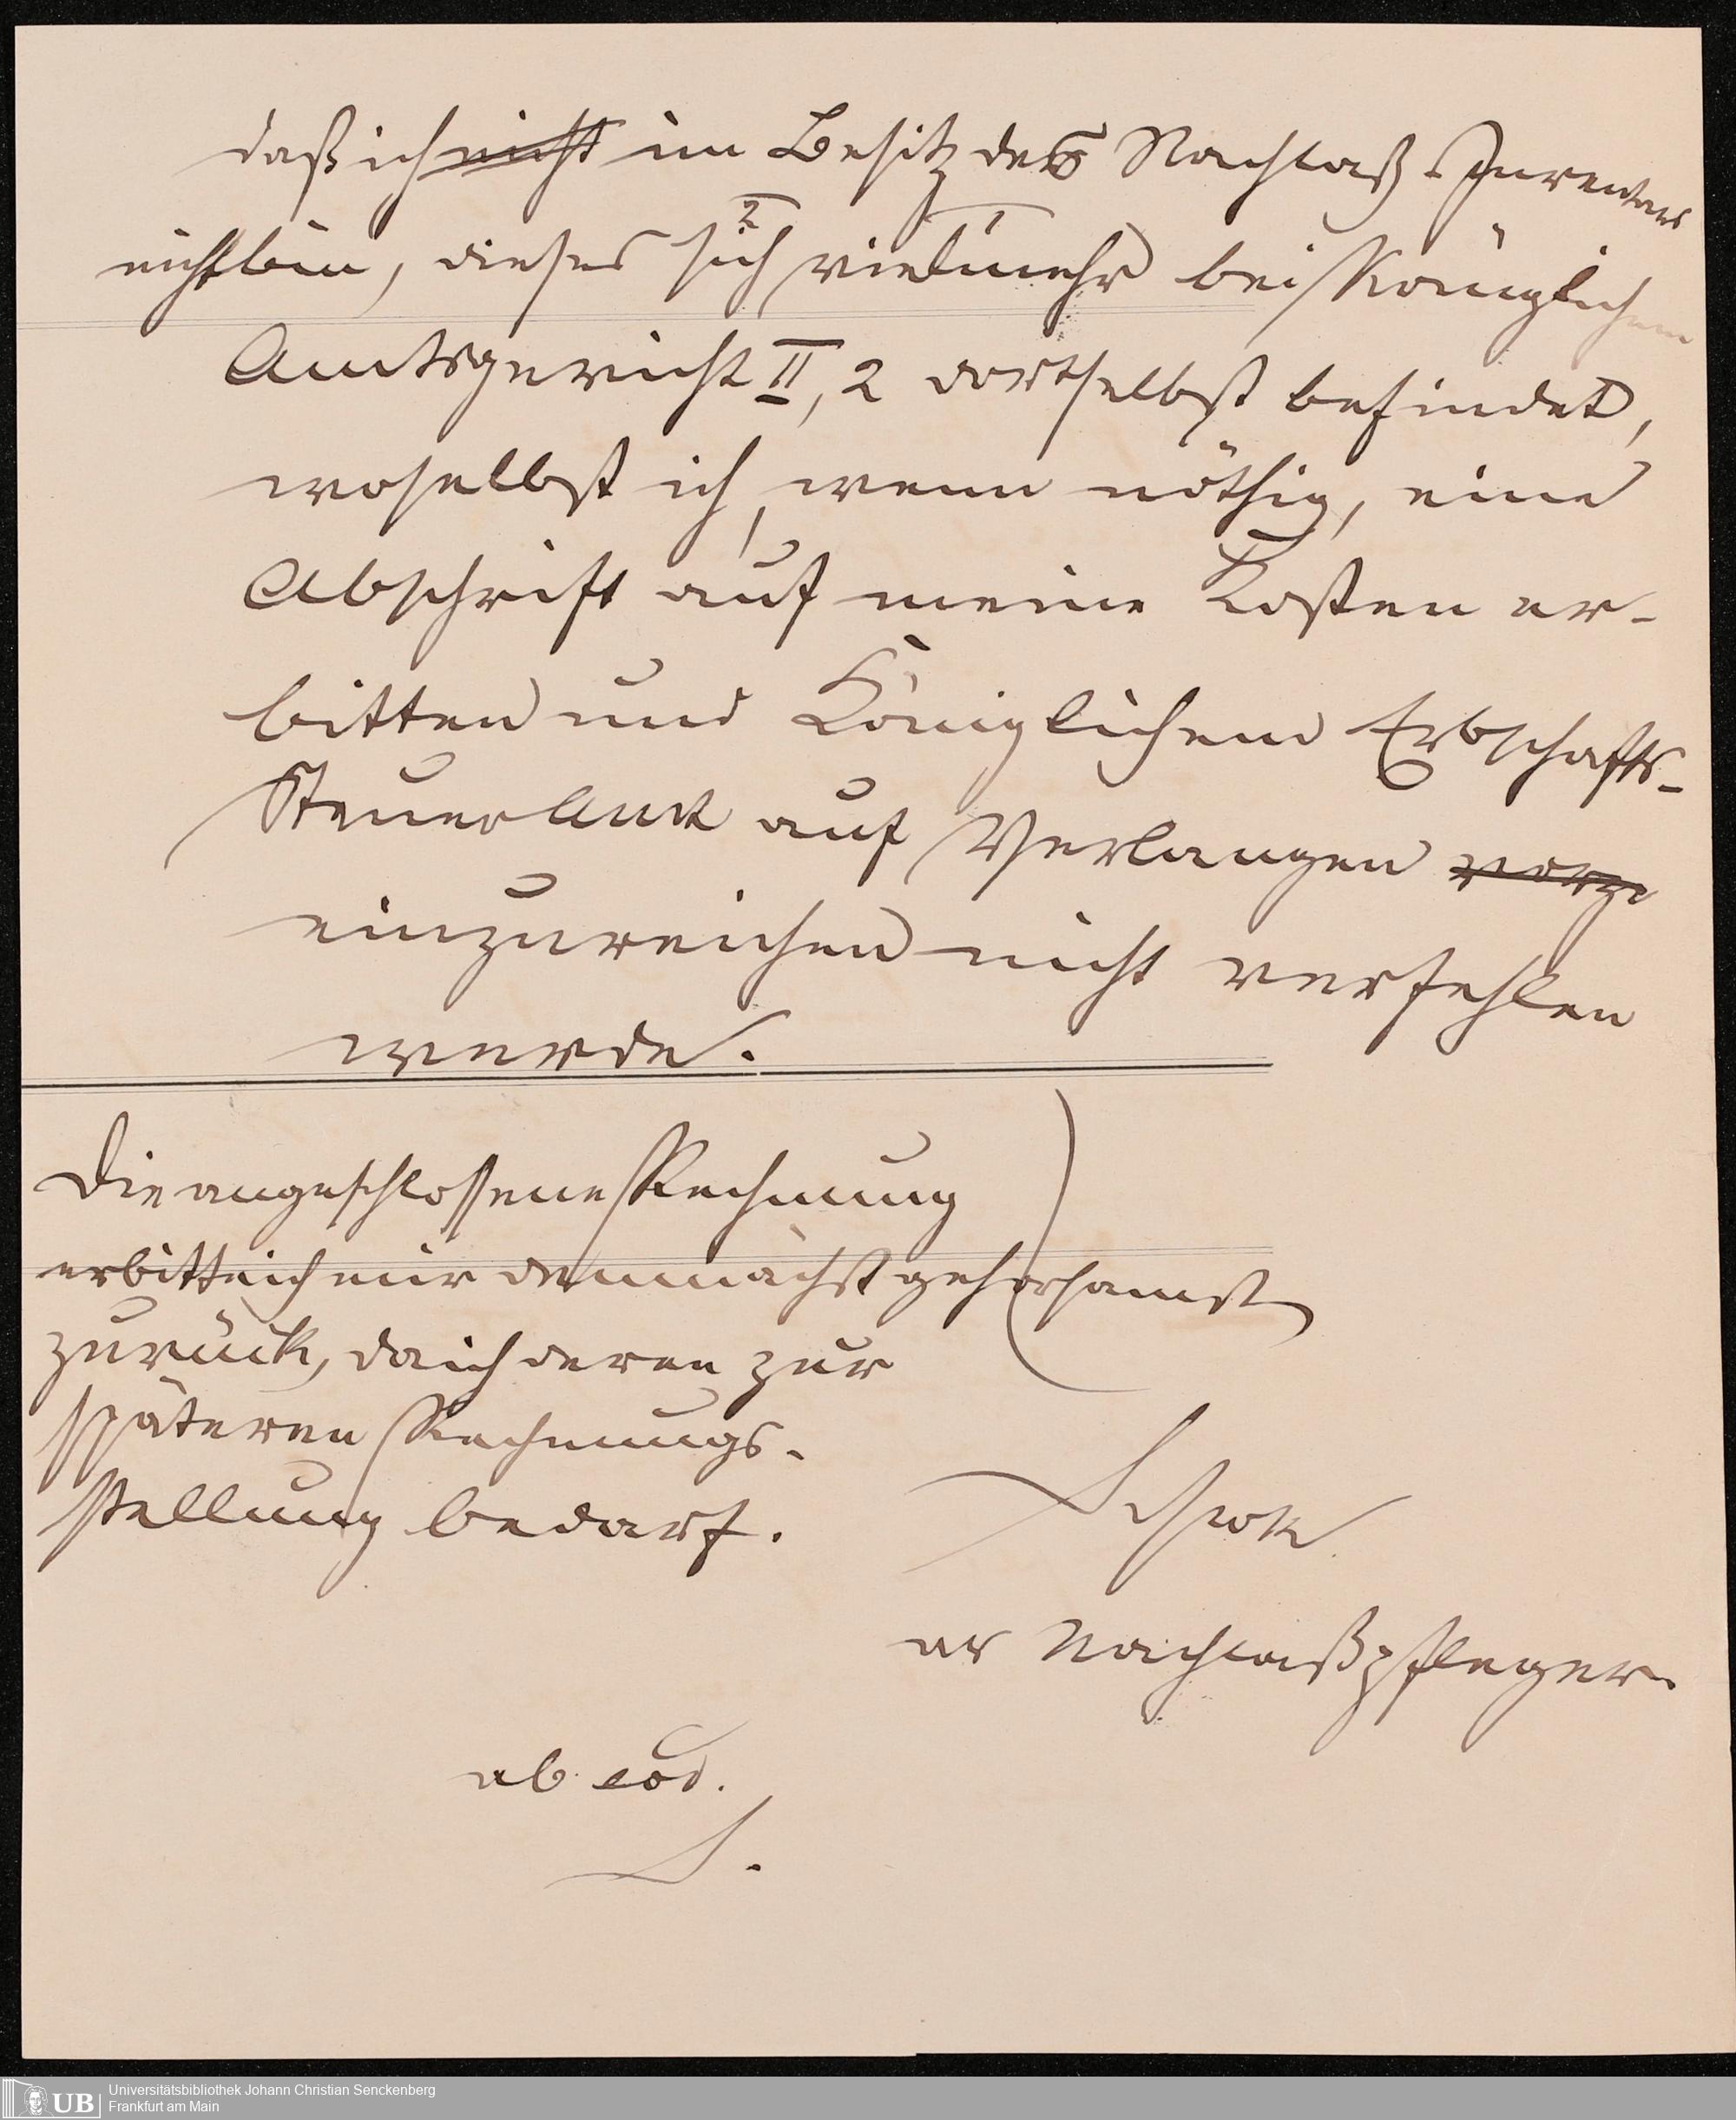 daß ich nicht im Besitz des Nachlaß-Inventars
nicht bin, dieses sich vielmehr bei Königlichem
2 1
Amtsgericht II, 2 dortselbst befindet,
woselbst ich, wenn nöthig, eine
Abschrift auf meine Kosten er-
bitten und Königlichem Erbschafts-
Steueramt auf Verlangen vorzu
einzureichen nicht verfehlen
werde.
Die angeschlossene Rechnung
erbitte ich mir demnächst gehorsamst
zurück, da ich deren zur
späteren Rechnungs-
stellung bedarf.
Nachlaßpfleger.
ab eod.
S.
Universitätsbibliothek Johann Christian Senckenberg
Frankfurt am Main
UB